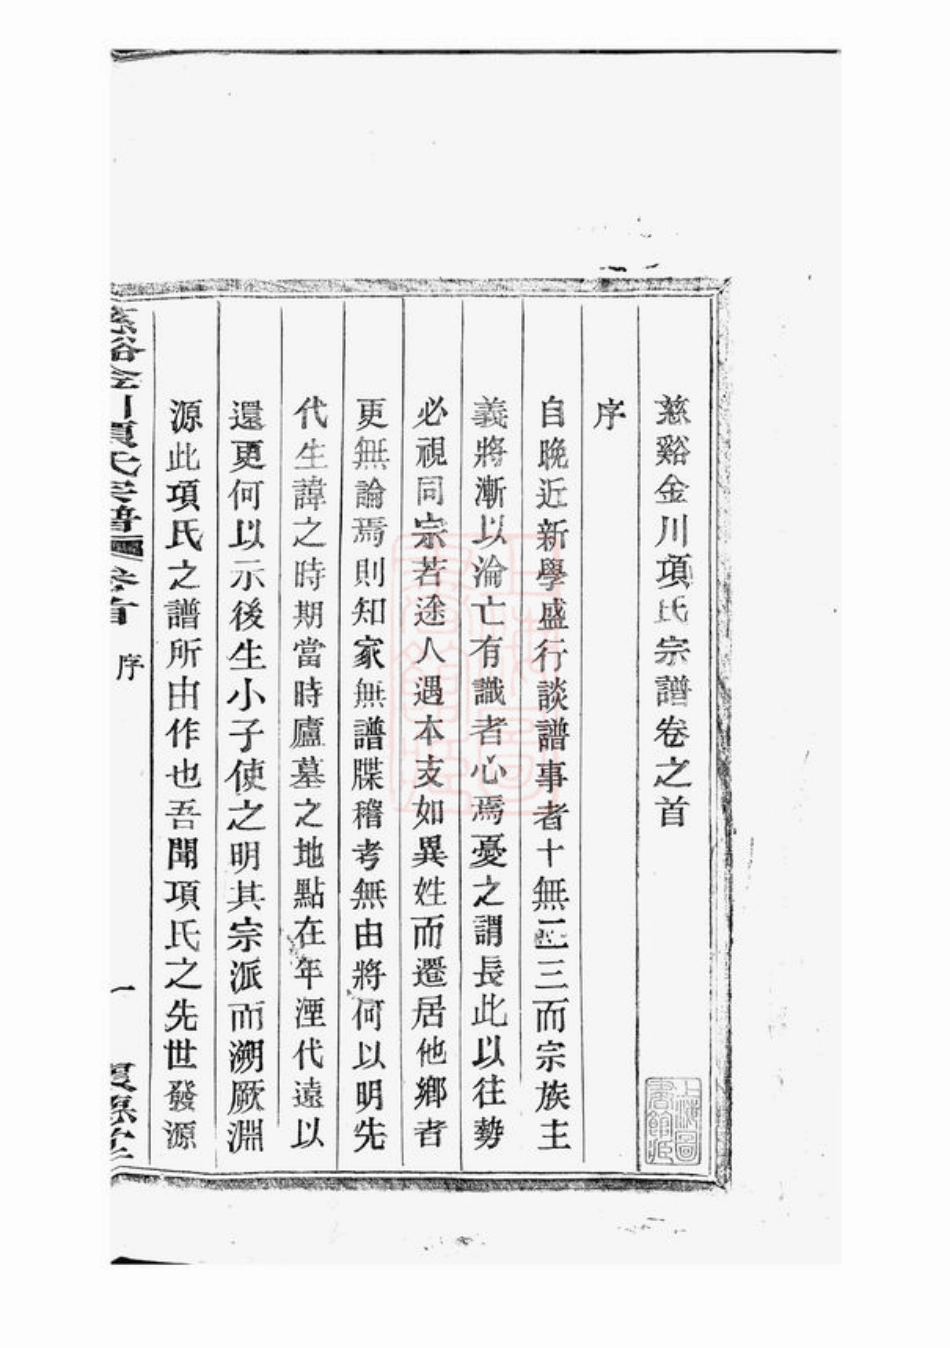 慈谿金川項氏宗譜卷之首
序
自晚近新學盛行談譜事者十無二三而宗族主
義將漸以淪亡有識者心焉憂之謂長此以往勢
必視同宗若途人遇本支如異姓而遷居他鄉者
更無論焉則知家無譜牒稽考無由將何以明先
代生諱之時期當時廬墓之地點在年湮代遠以
還更何以示後生小子使之明其宗派而溯厥淵
源此項氏之譜所由作也吾聞項氏之先世發源
慈谿金川項氏宗譜 卷首 序 一
上海圖書館藏